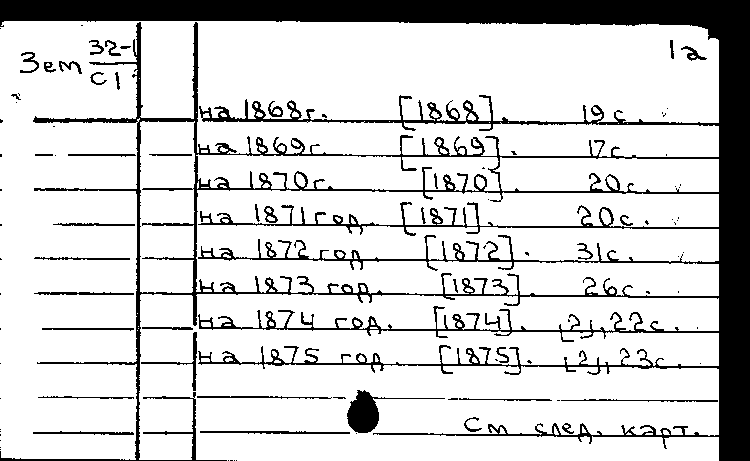 1а
Зем 32-1
С1
на 1868г. [1868]. 19с.
на 1869г. [1869]. 17с.
на 1870г. [1870]. 20с.
на 1871 год. [1871]. 20с.
на 1872 год. [1872]. 31с.
на 1873 год. [1873]. 26с.
на 1874 год. [1874]. [2], 22с.
на 1875 год. [1875]. [2], 23с.
См след. карт.